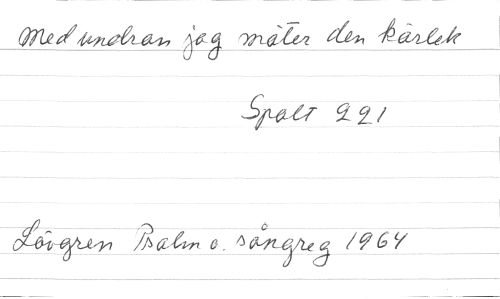 Med undran jag mäter den kärlek
Spalt 221
Lövgren Psalm o. sångreg 1964